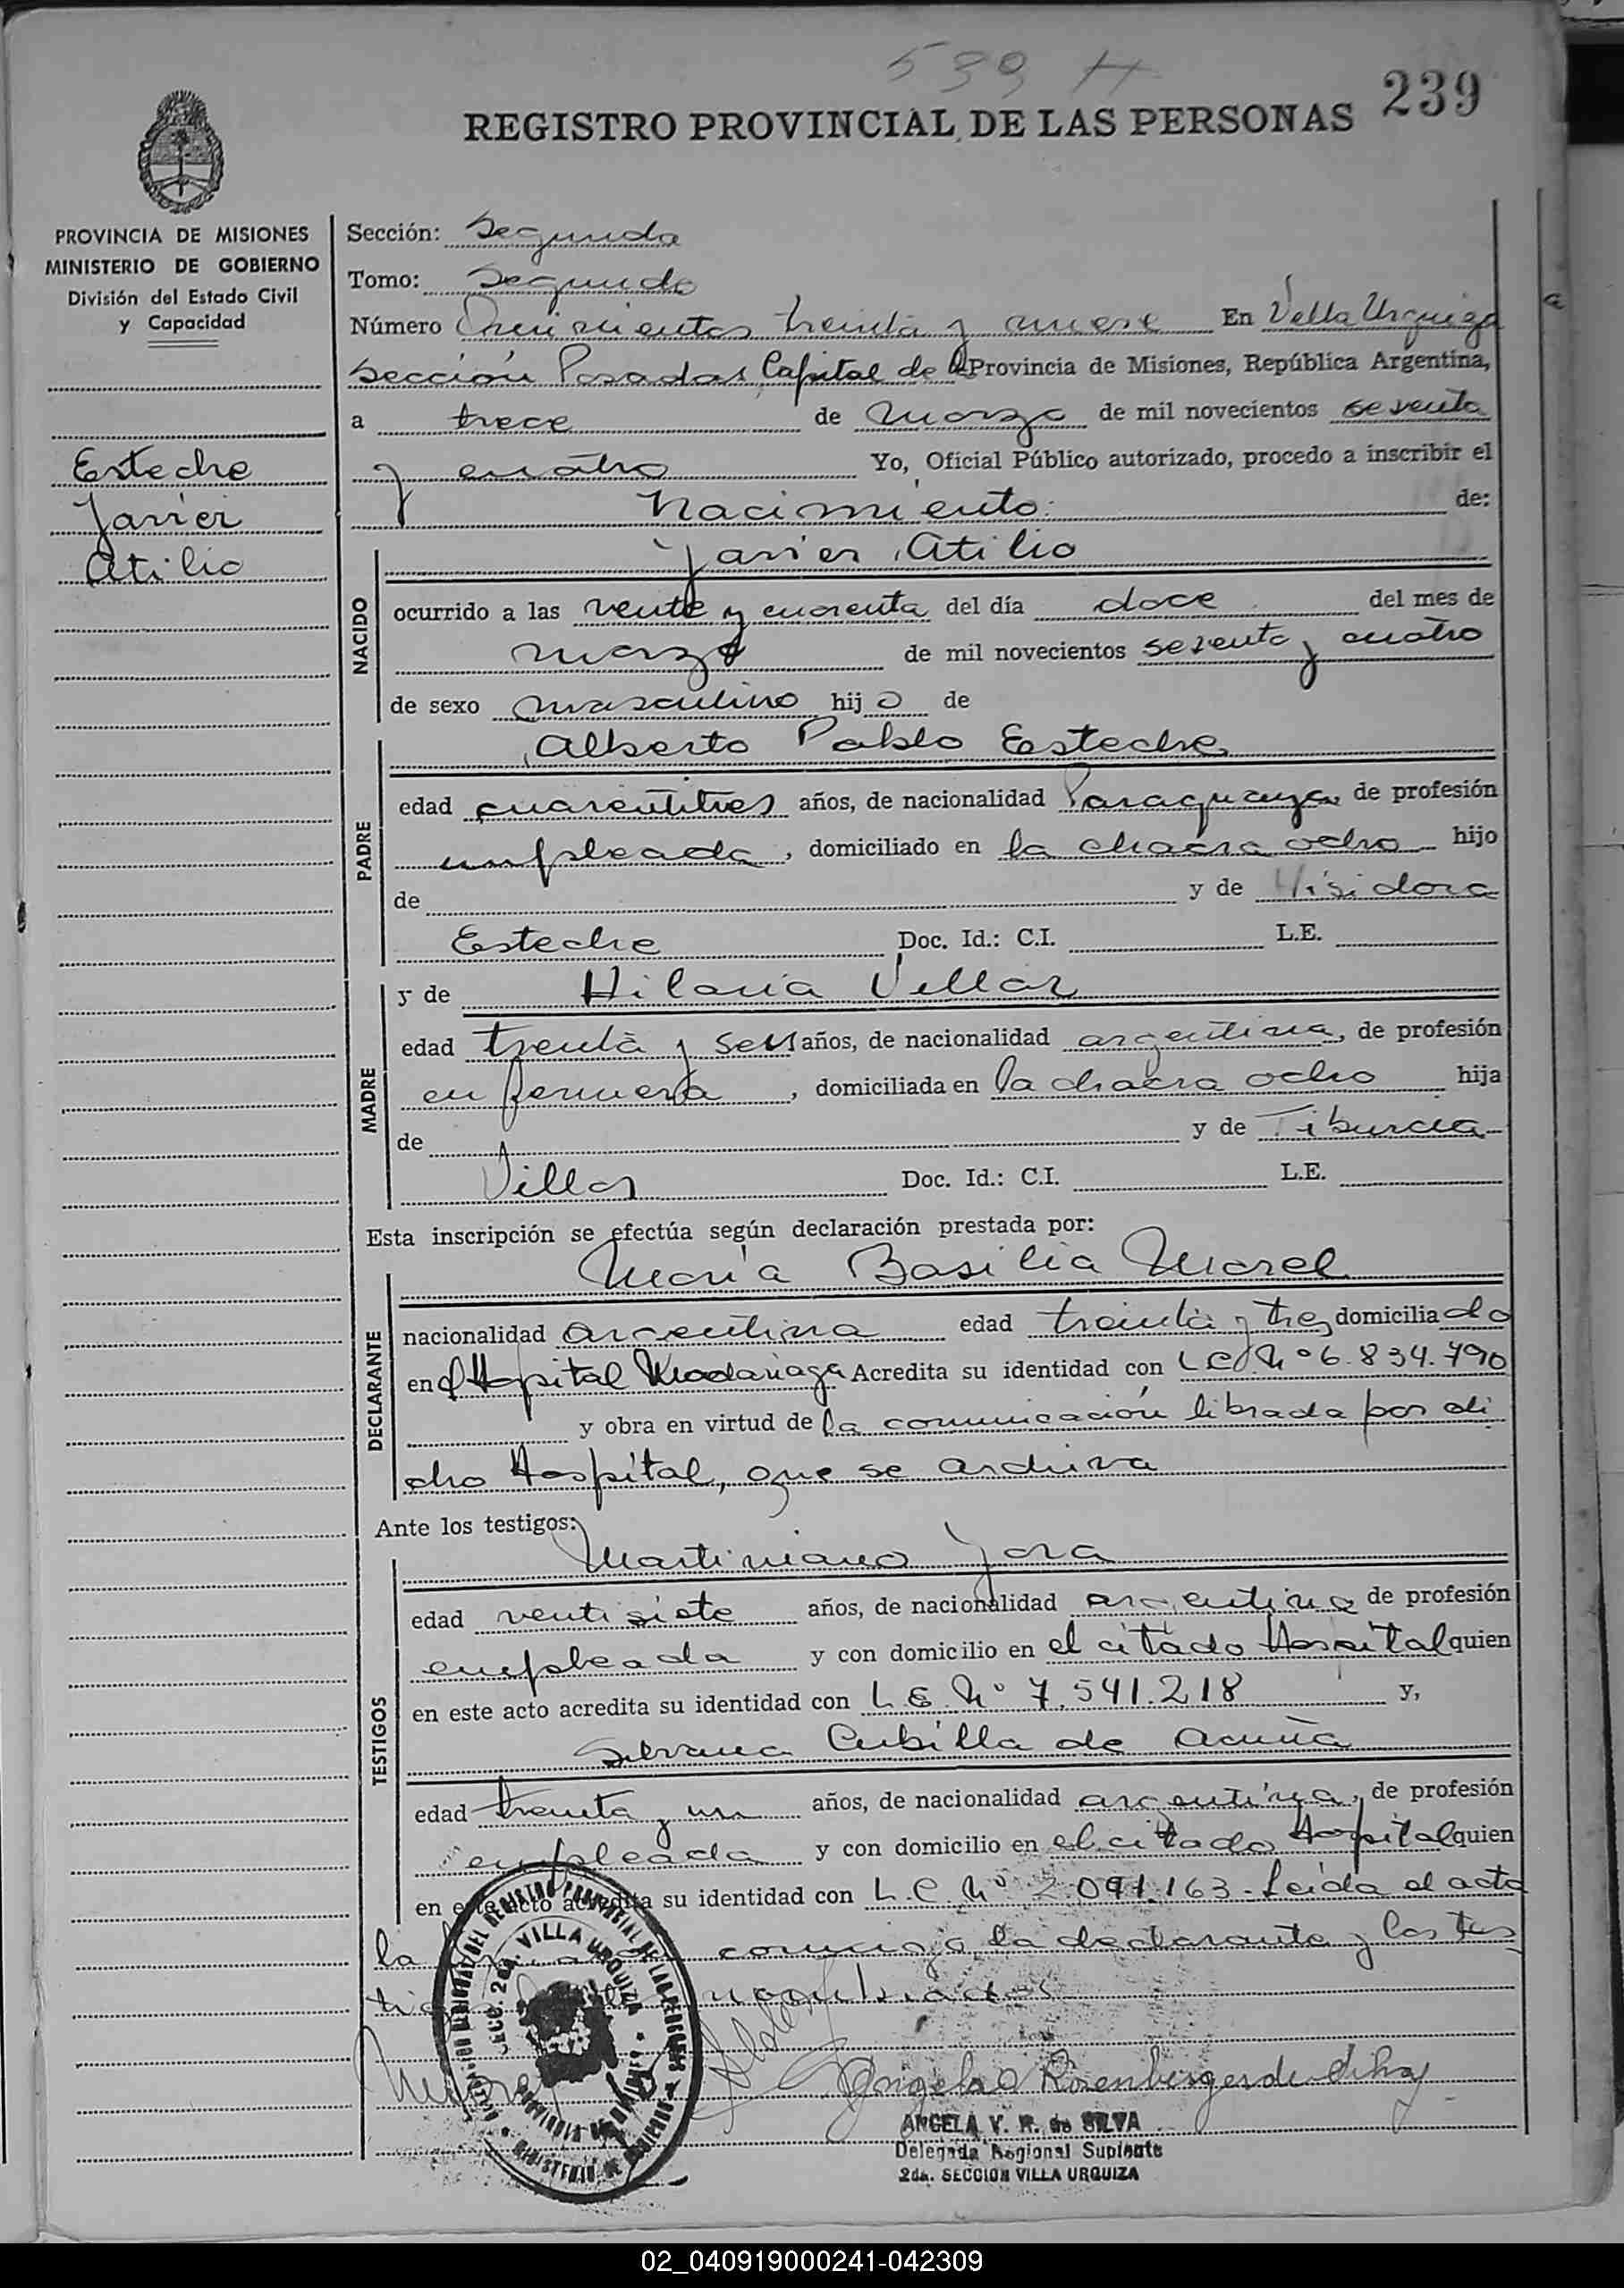 539 H
REGISTRO PROVINCIAL DE LAS PERSONAS 239
PROVINCIA DE MISIONES
MINISTERIO DE GOBIERNO
División del Estado Civil
y Capacidad
Esteche
Javier
Atilio
Sección: Segunda
Tomo: Segundo
Número Quinientos treinta y nueve En Villa Urquiza
Sección Posadas, Capital de la Provincia de Misiones, República Argentina,
a trece de marzo de mil novecientos setenta
y cuatro Yo, Oficial Público autorizado, procedo a inscribir el
Nacimiento de:
Javier Atilio
NACIDO
ocurrido a las veinte y cuarenta del día doce del mes de
marzo de mil novecientos setenta y cuatro
de sexo masculino hijo de
Alberto Pablo Esteche
PADRE
edad cuarentitres años, de nacionalidad Paraguaya, de profesión
empleada, domiciliado en la chacra ocho hijo
de y de Isidora
Esteche Doc. Id.: C.I. L.E.
MADRE
y de Hilaria Villar
edad treinta y seis años, de nacionalidad argentina, de profesión
enfermera, domiciliada en la chacra ocho hija
de y de Tiburcia
Villar Doc. Id.: C.I. L.E.
Esta inscripción se efectúa según declaración prestada por:
María Basilia Morel
DECLARANTE
nacionalidad argentina edad treinta y tres domiciliado
en el Hospital Madariaga Acredita su identidad con L.C. Nº 6.834.790
y obra en virtud de la comunicación librada por di
cho Hospital, que se archiva
Ante los testigos:
Martiniano Jara
TESTIGOS
edad ventisiete años, de nacionalidad argentina de profesión
empleada y con domicilio en el citado Hospital quien
en este acto acredita su identidad con L.E. Nº 7.541.218 y,
Silvana Cubilla de Acuña
edad treinta y un años, de nacionalidad argentina, de profesión
empleada y con domicilio en el citado Hospital quien
en este acto acredita su identidad con L.C. Nº 2.091.163. Leída el acta
la conmigo, la declarante y los tes
tigos nombrados
Angela Rosenberger de Silva
ANGELA V. R. de SILVA
Delegada Regional Suplente
2da. SECCION VILLA URQUIZA
SECC. 2da. VILLA URQUIZA
02_040919000241-042309